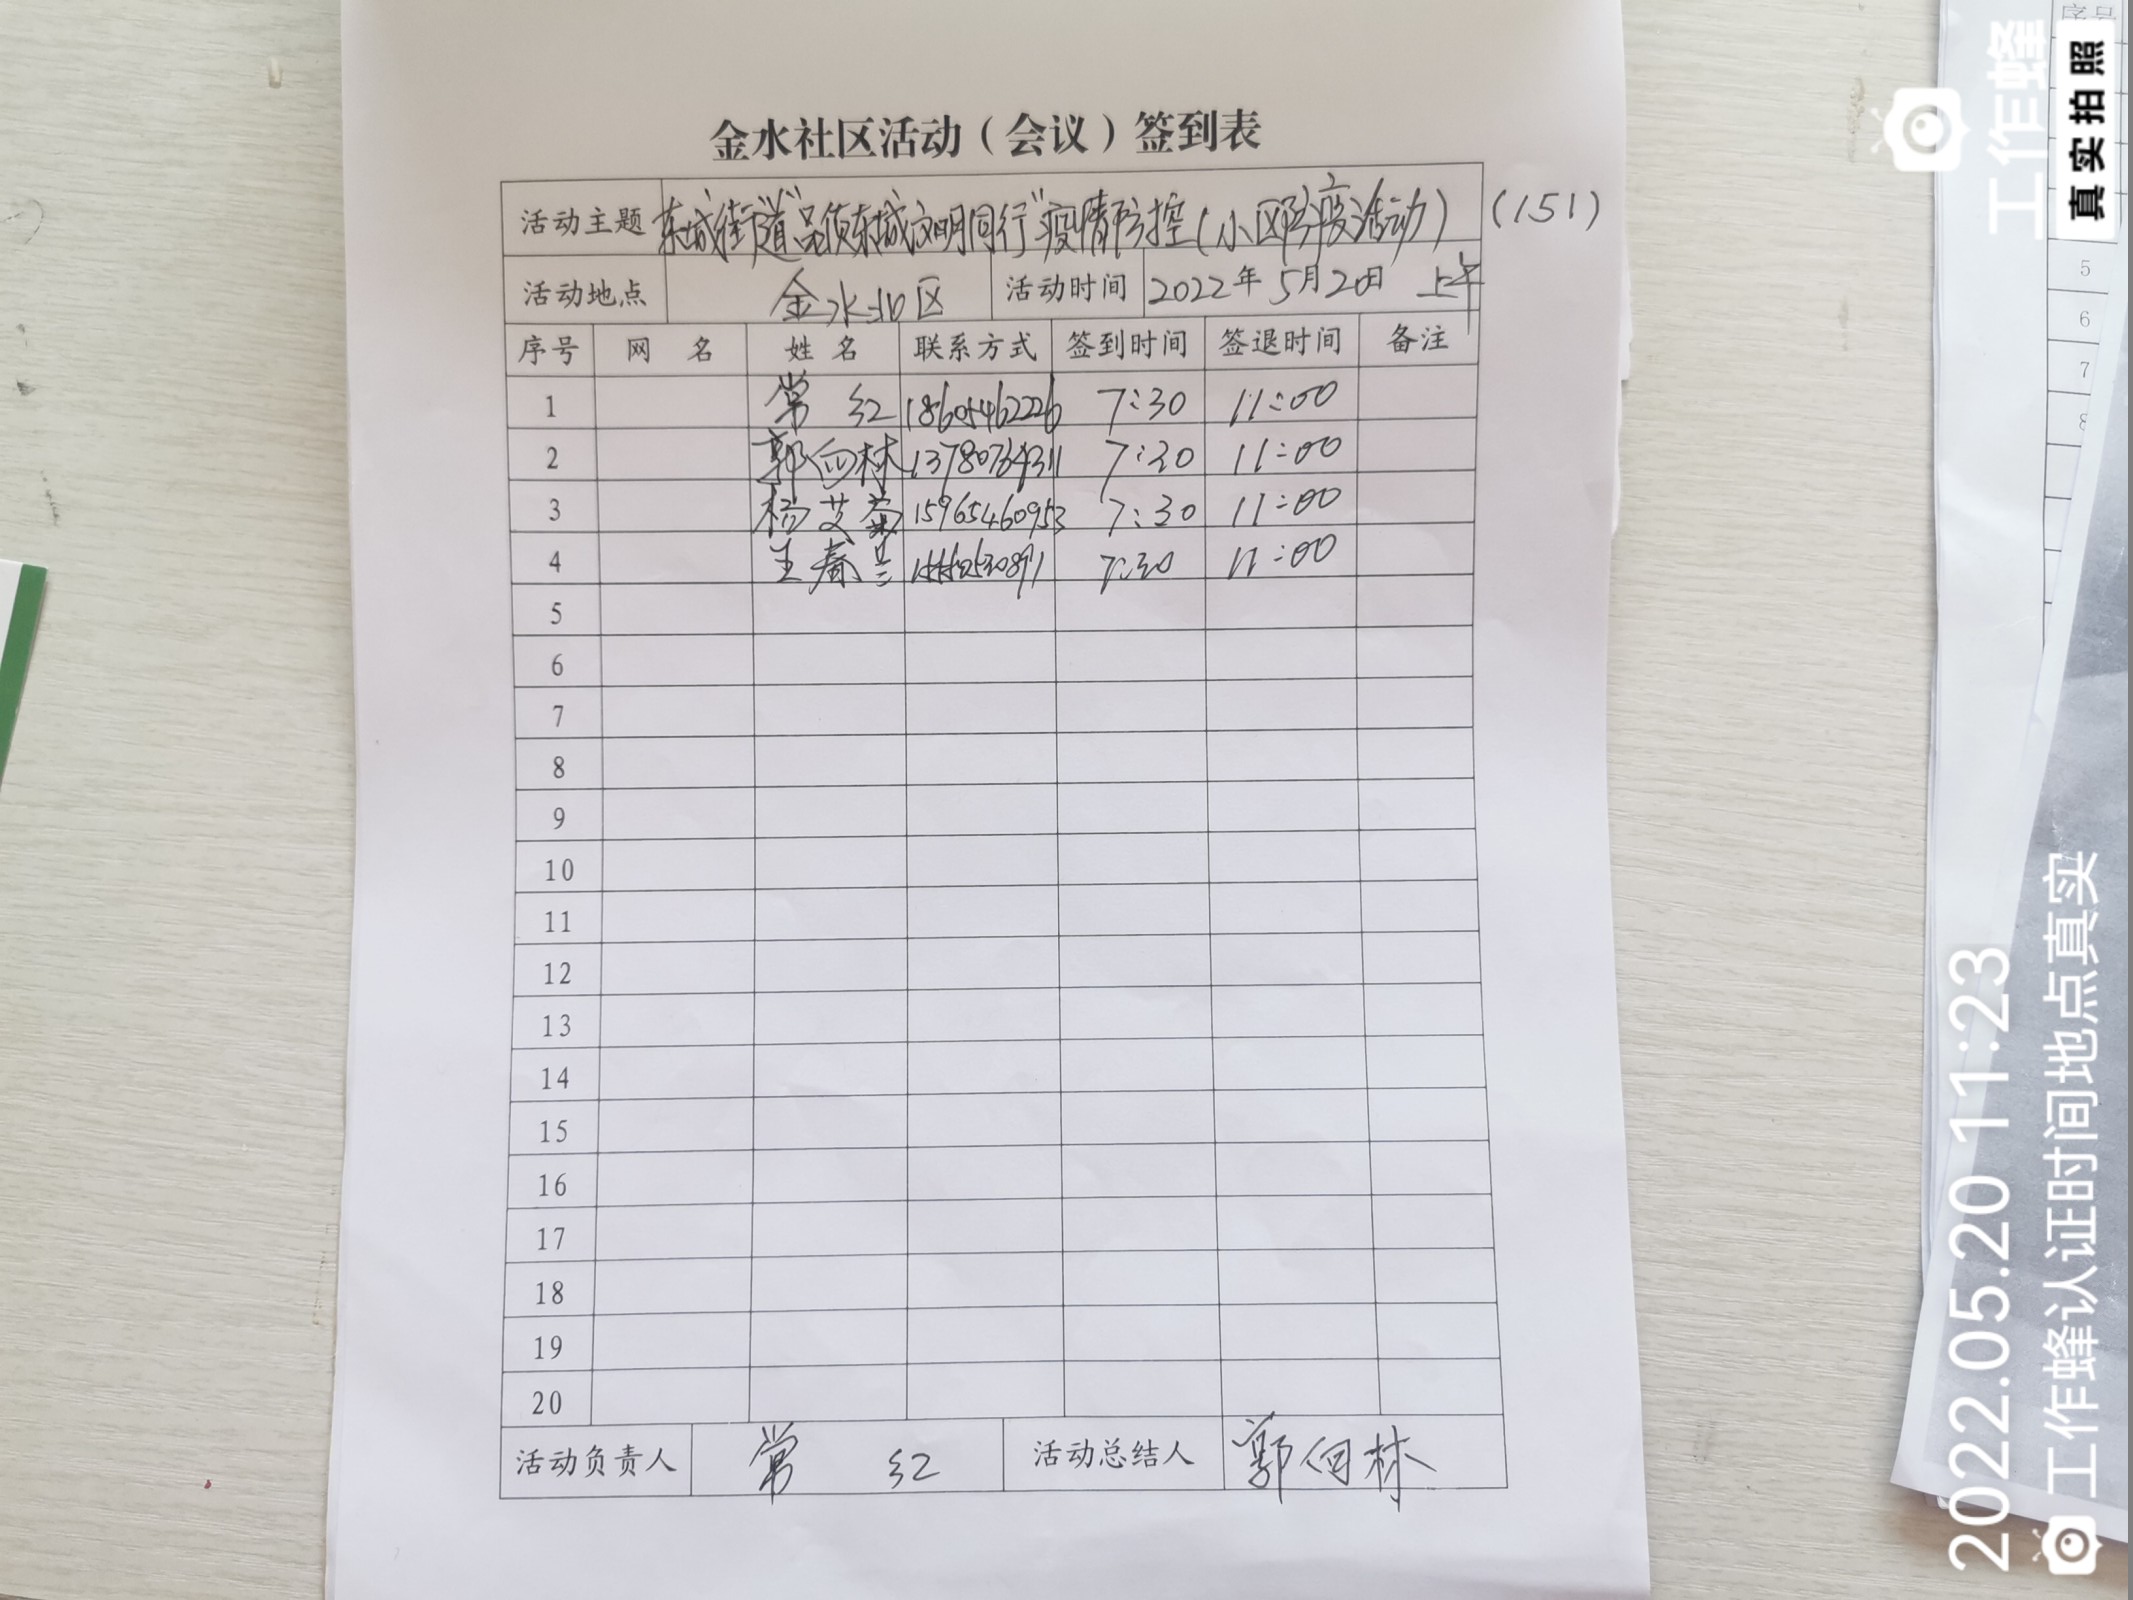 金水社区活动（会议）签到表
活动主题 东城街道"品质东城文明同行"疫情防控(小区防疫活动) (151)
活动地点 金水北区 活动时间 2022年5月20日 上午
序号 网名 姓名 联系方式 签到时间 签退时间 备注
1 常红 18605462226 7:30 11:00
2 郭向林 13780764311 7:30 11:00
3 杨艾菊 15965460953 7:30 11:00
4 王春兰 7:30 11:00
5
6
7
8
9
10
11
12
13
14
15
16
17
18
19
20
活动负责人 常红 活动总结人 郭向林
序号
5
6
7
8
工作蜂
真实拍照
2022.05.20 11:23
工作蜂认证时间地点真实